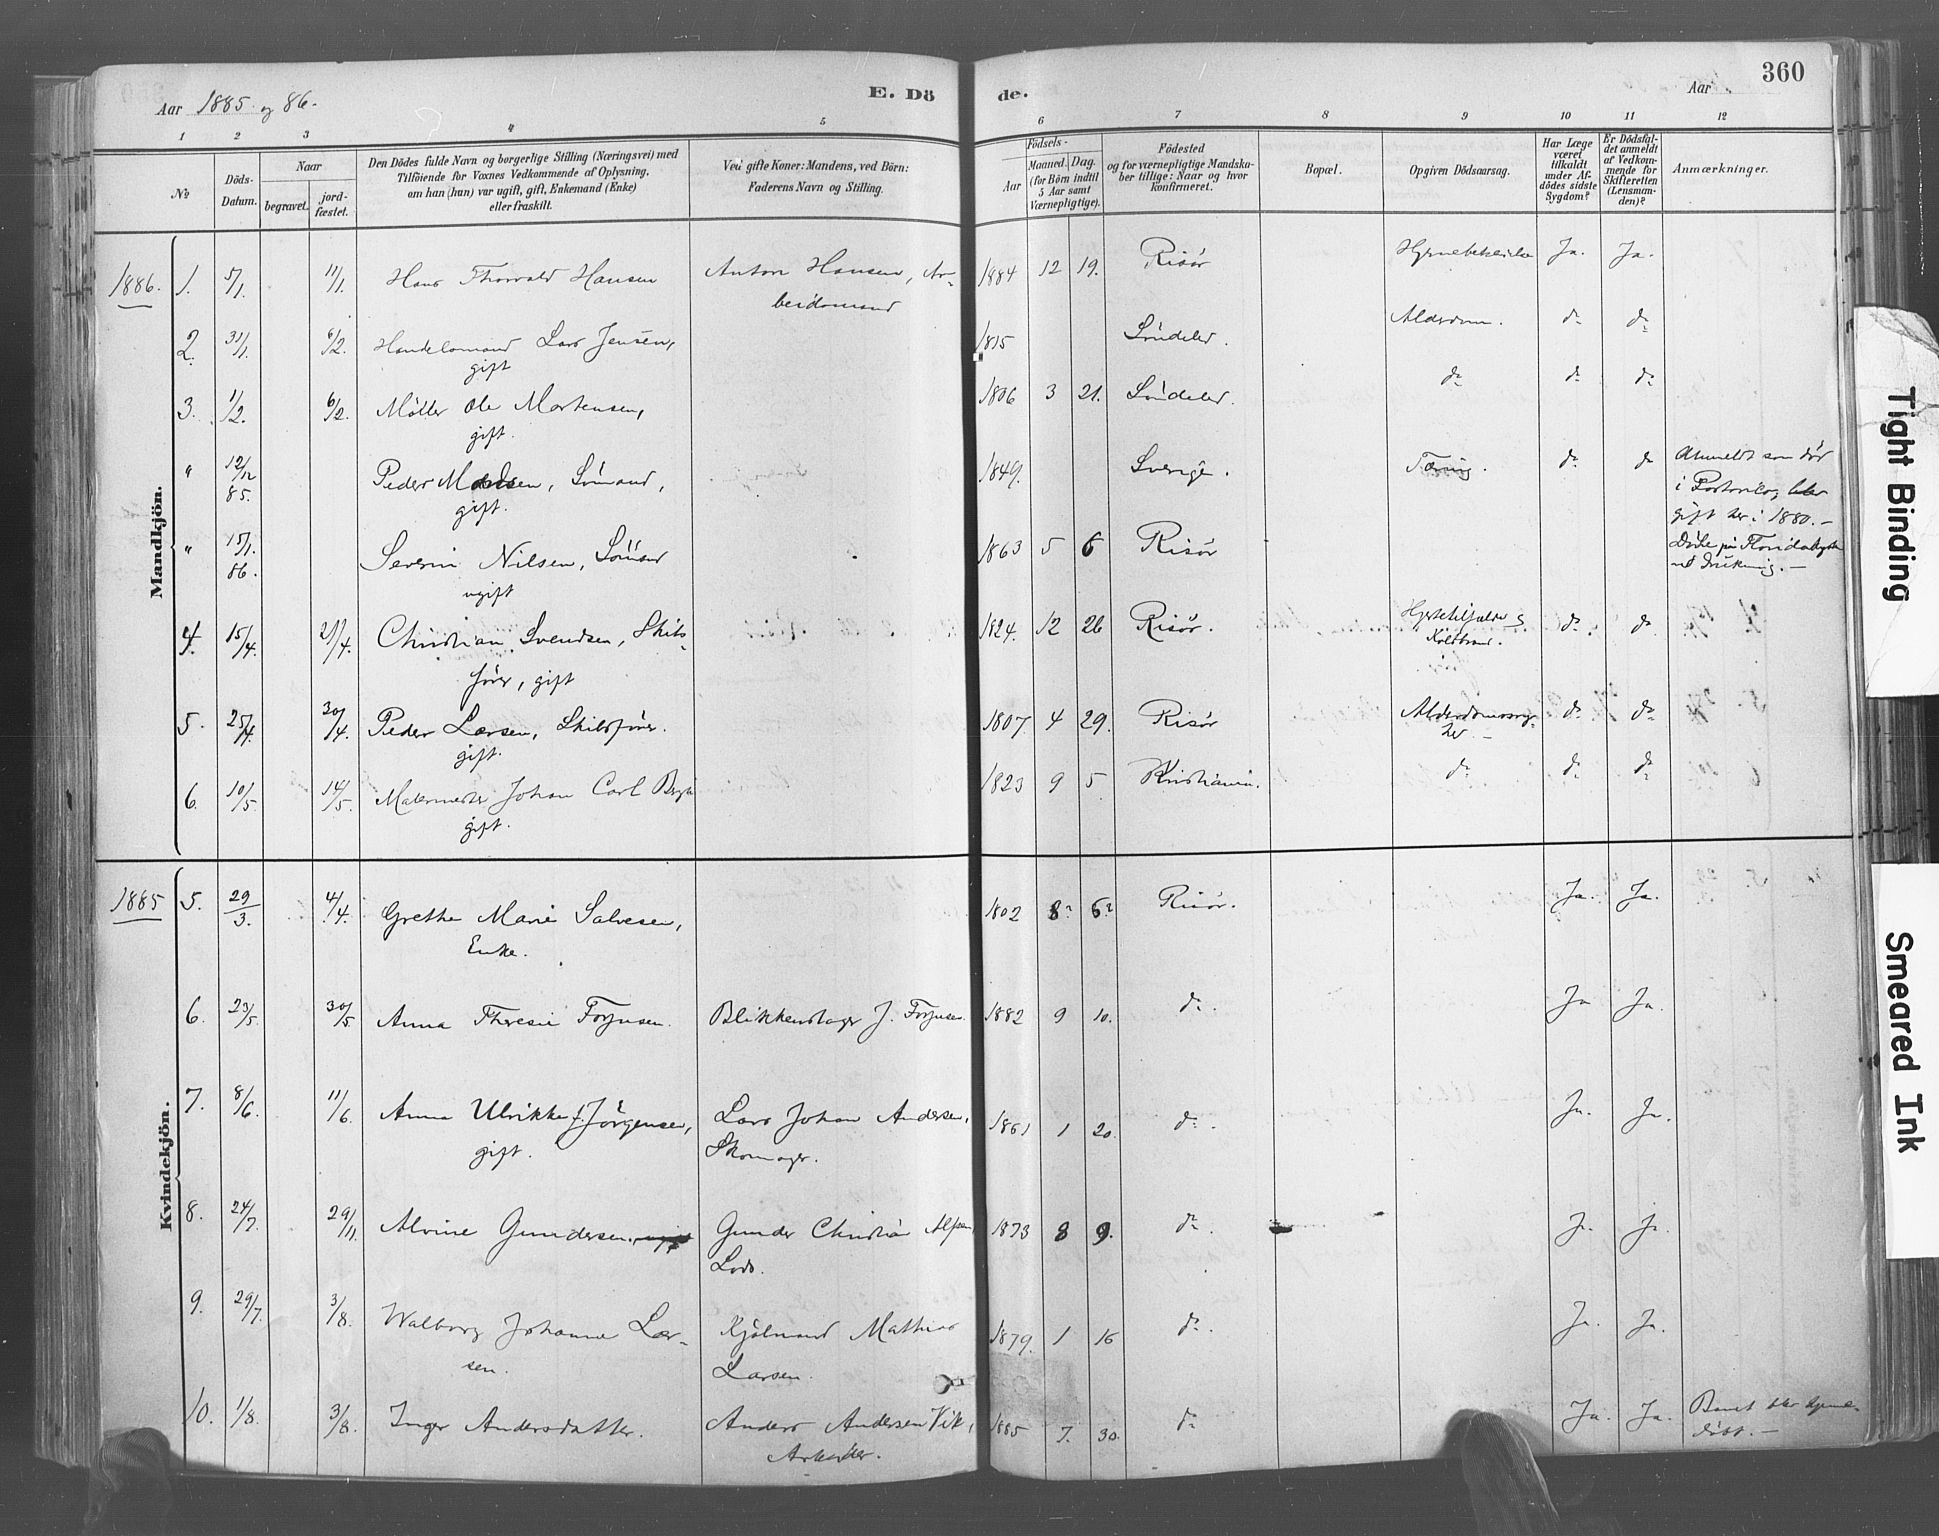 Aar 1885 og 86.
E. Dö
de.
Aar
360
1 2 3 4 5 6 7 8 9 10 11 12
№
Döds-
Datum.
Naar
begravet.
jord-
fæstet.
Den Dödes fulde Navn og borgerlige Stilling (Næringsvei) med
Tilföiende for Voxnes Vedkommende af Oplysning,
om han (hun) var ugift, gift, Enkemand (Enke)
eller fraskilt.
Ved gifte Koner: Mandens, ved Börn:
Faderens Navn og Stilling.
Födsels-
Aar
Maaned. Dag.
(for Börn indtil
5 Aar samt
Værnepligtige).
Födested
og for værnepligtige Mandska-
ber tillige: Naar og hvor
konfirmeret.
Bopæl.
Opgiven Dödsaarsag.
Har Læge
været
tilkaldt
under Af-
dödes sidste
Sygdom?
Er Dödsfal-
det anmeldt
af Vedkom-
mende for
Skifteretten
(Lensman-
den)?
Anmærkninger.
Mandkjön.
1886. 1. 5/1. 11/1. Hans Thorvald Hansen Anton Hansen, Ar-
beidsmand 1884 12 19. Risör Ja. Ja.
2. 31/1. 6/2. Handelsmand Lars Jensen, 1815 Söndeled. Alderdom. do do
gift
3. 1/2. 6/2. Möller Ole Mortensen, 1806 3 21. Söndeled. do do do
gift.
" 12/12 85. Peder Madsen, Sömand, 1849. Sverige. Tæring. do do Anmeldt som död
gift. i Portorico, blev
gift her i 1880.-
" 15/1. 86. Severin Nilsen, Sömand 1863 5 6 Risör Döde på Floridakysten
ugift ved Drukning.-
4. 15/4. 21/4. Christian Svendsen, Skibs- 1824. 12 26 Risör. Hjertelidelse og do do
förer, gift Koldbrand.
5. 25/4. 30/4. Peder Larsen, Skibsförer. 1807 4 29. Risör Alderdomssvag- do do
gift. hed.-
6. 10/5. 14/5. Malermester Johan Carl 1823 9 5 Kristiania. do do do
gift.
Kvindekjön.
1885 5. 29/3. 4/4. Grethe Marie Salvesen, 1802 8? 6? Risör. Ja. Ja.
Enke.
6. 23/5. 30/5 Anna Theresie Forjusen. Blikkenslager J. Forjusen. 1882 9 10. do. Ja Ja.
7. 8/6. 11/6. Anna Ulrikke f. Jörgensen, Lars Johan Andersen, 1861 1 20. do. Ja. Ja.
gift. Skomager.
8. 24/7. 29/11. Alvine Gundersen. Gunder Christian 1873 8 9. do. Ja. Ja.
Lods.
9. 29/7. 3/8. Walborg Johanne Lar- Kjölmand Mathias 1879. 1 16 do. Ja. Ja.
sen. Larsen.
10. 1/8. 3/8. Inger Andersdatter. Anders Andersen Vik, 1885 7. 30. do Ja. Ja. Barnet blev hjemme-
Arbeider. döbt.-
Tight Binding
Smeared Ink